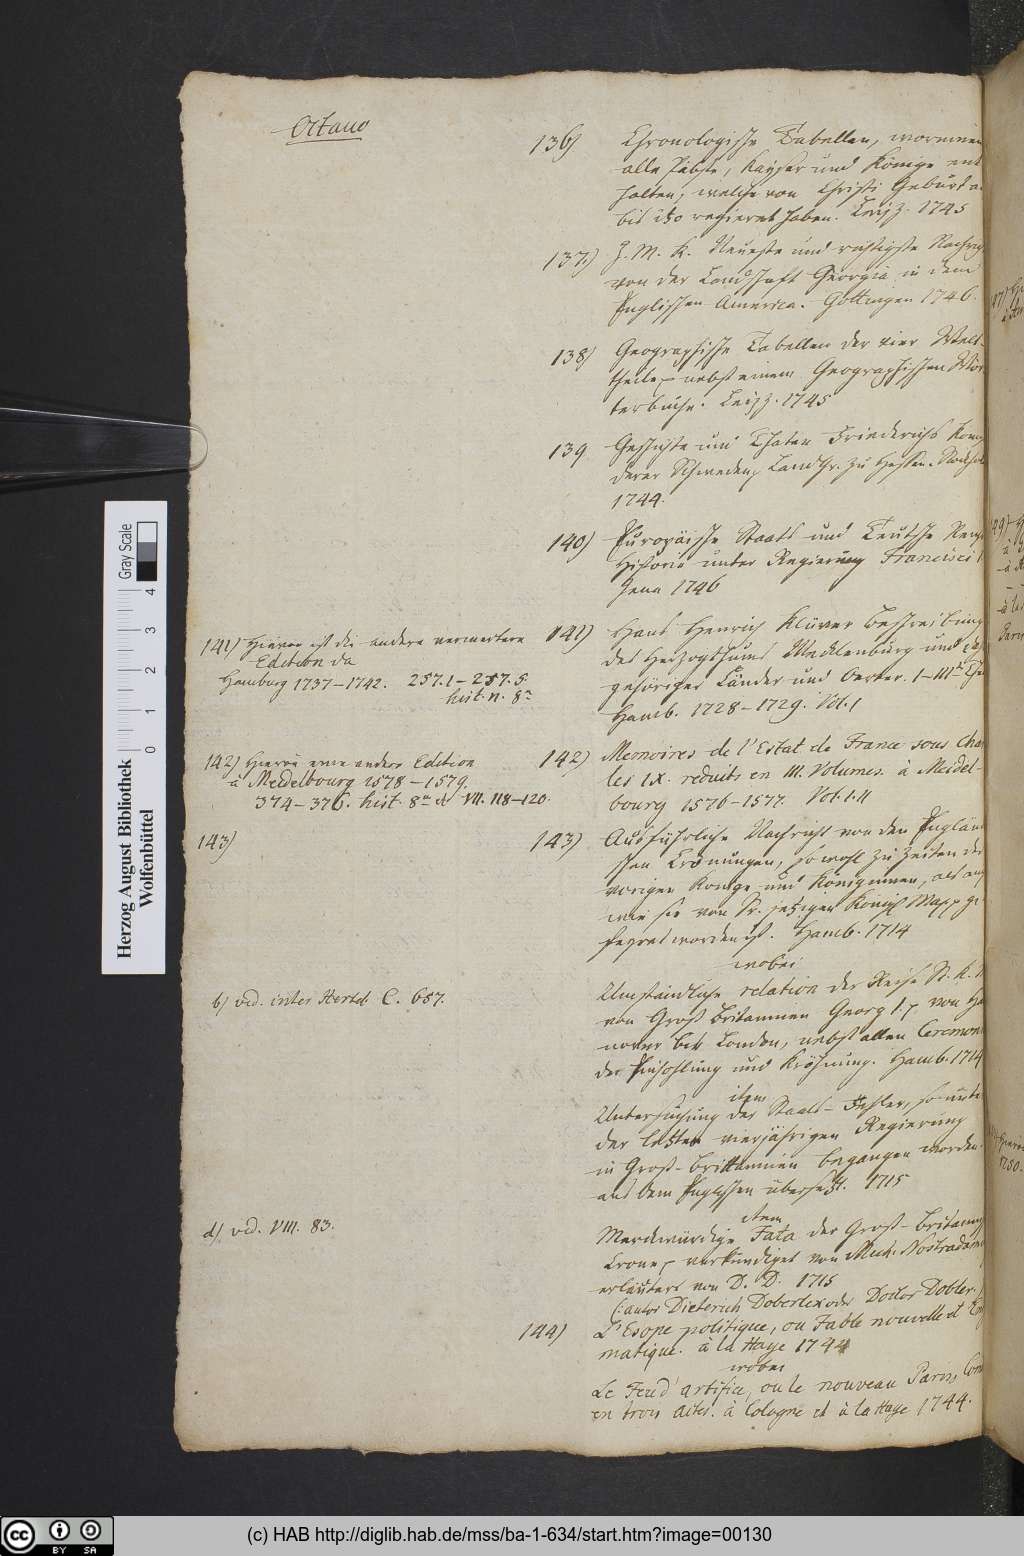 Octavo
136) Chronologische Tabellen, worinnen
alle Päbste, Kayser und Könige ent
halten, welche von Christi Geburt a
bis itzo regieret haben. Leipz. 1745
137.) J. M. K. Neueste und richtigste Nachri
von der Landschaft Georgia in dem
Englischen America. Göttingen 1746.
138) Geographische Tabellen der vier Welt-
theile, nebst einem Geographischen Wör
terbuche. Leipz. 1745
139. Geschichte und Thaten Friederichs König
derer Schweden, Landgr. zu Hessen. Stockhol
1744.
140) Europäische Staats und Teutsche Reichs
Historie unter Regierung Francisci I
Jena 1746
141) Hievon ist die andere vermehrte
Edition da
Hamburg 1737–1742. 257.1–257.5
hist. n. 8º
141) Hans Henrich Klüver Beschreibung
des Herzogthums Mecklenburg und da
gehöriger Länder und Oerter. I–III
Hamb. 1728–1729. Vol. 1
142) Hievon eine andere Edition
à Meidelbourg 1578–1579.
374–376. hist. 8º & VII. 118–120.
142) Memoires de l'Estat de France sous Char
les IX. reduits en III. Volumes. à Meidel-
bourg 1576–1577. Vol. I. II
143)
143) Ausführliche Nachricht von den Englän
schen Crönungen, so wohl zu Zeiten der
vorigen Könige und Königinnen, als auch
wie sie von Sr. jetzigen Königl. Maj. ge
feyret worden ist. Hamb. 1714
wobei
b) vid. inter Hertel. C. 687.
Umständliche relation der Reise Sr. K. M
von Groß Britannien Georg I. von Ha
nover bis London, nebst allen Ceremoni
der Einhohlung und Kröhnung. Hamb. 1714
item
Untersuchung der Staats-Fehler, so unter
der letzten vierjährigen Regierung
in Groß-Britannien begangen worden.
aus dem Englischen übersetzt. 1715
item
d) vid. VIII. 83.
Merckwürdige Fata der Groß-Britanni
Crone, verkündiget von Mich. Nostradam
erläutert von D. D. 1715
(: autor Dieterich Doberlex oder Doctor Dobler :)
144) L'Esope politique, ou Fable nouvelle et Enig
matique. à la Haye 1744
wobei
Le Feu d'artifice, ou le nouveau Paris, Com
en trois Actes. à Cologne et à la Haye 1744.
Herzog August Bibliothek
Wolfenbüttel
0 1 2 3 4
Gray Scale
(c) HAB http://diglib.hab.de/mss/ba-1-634/start.htm?image=00130
cc BY SA